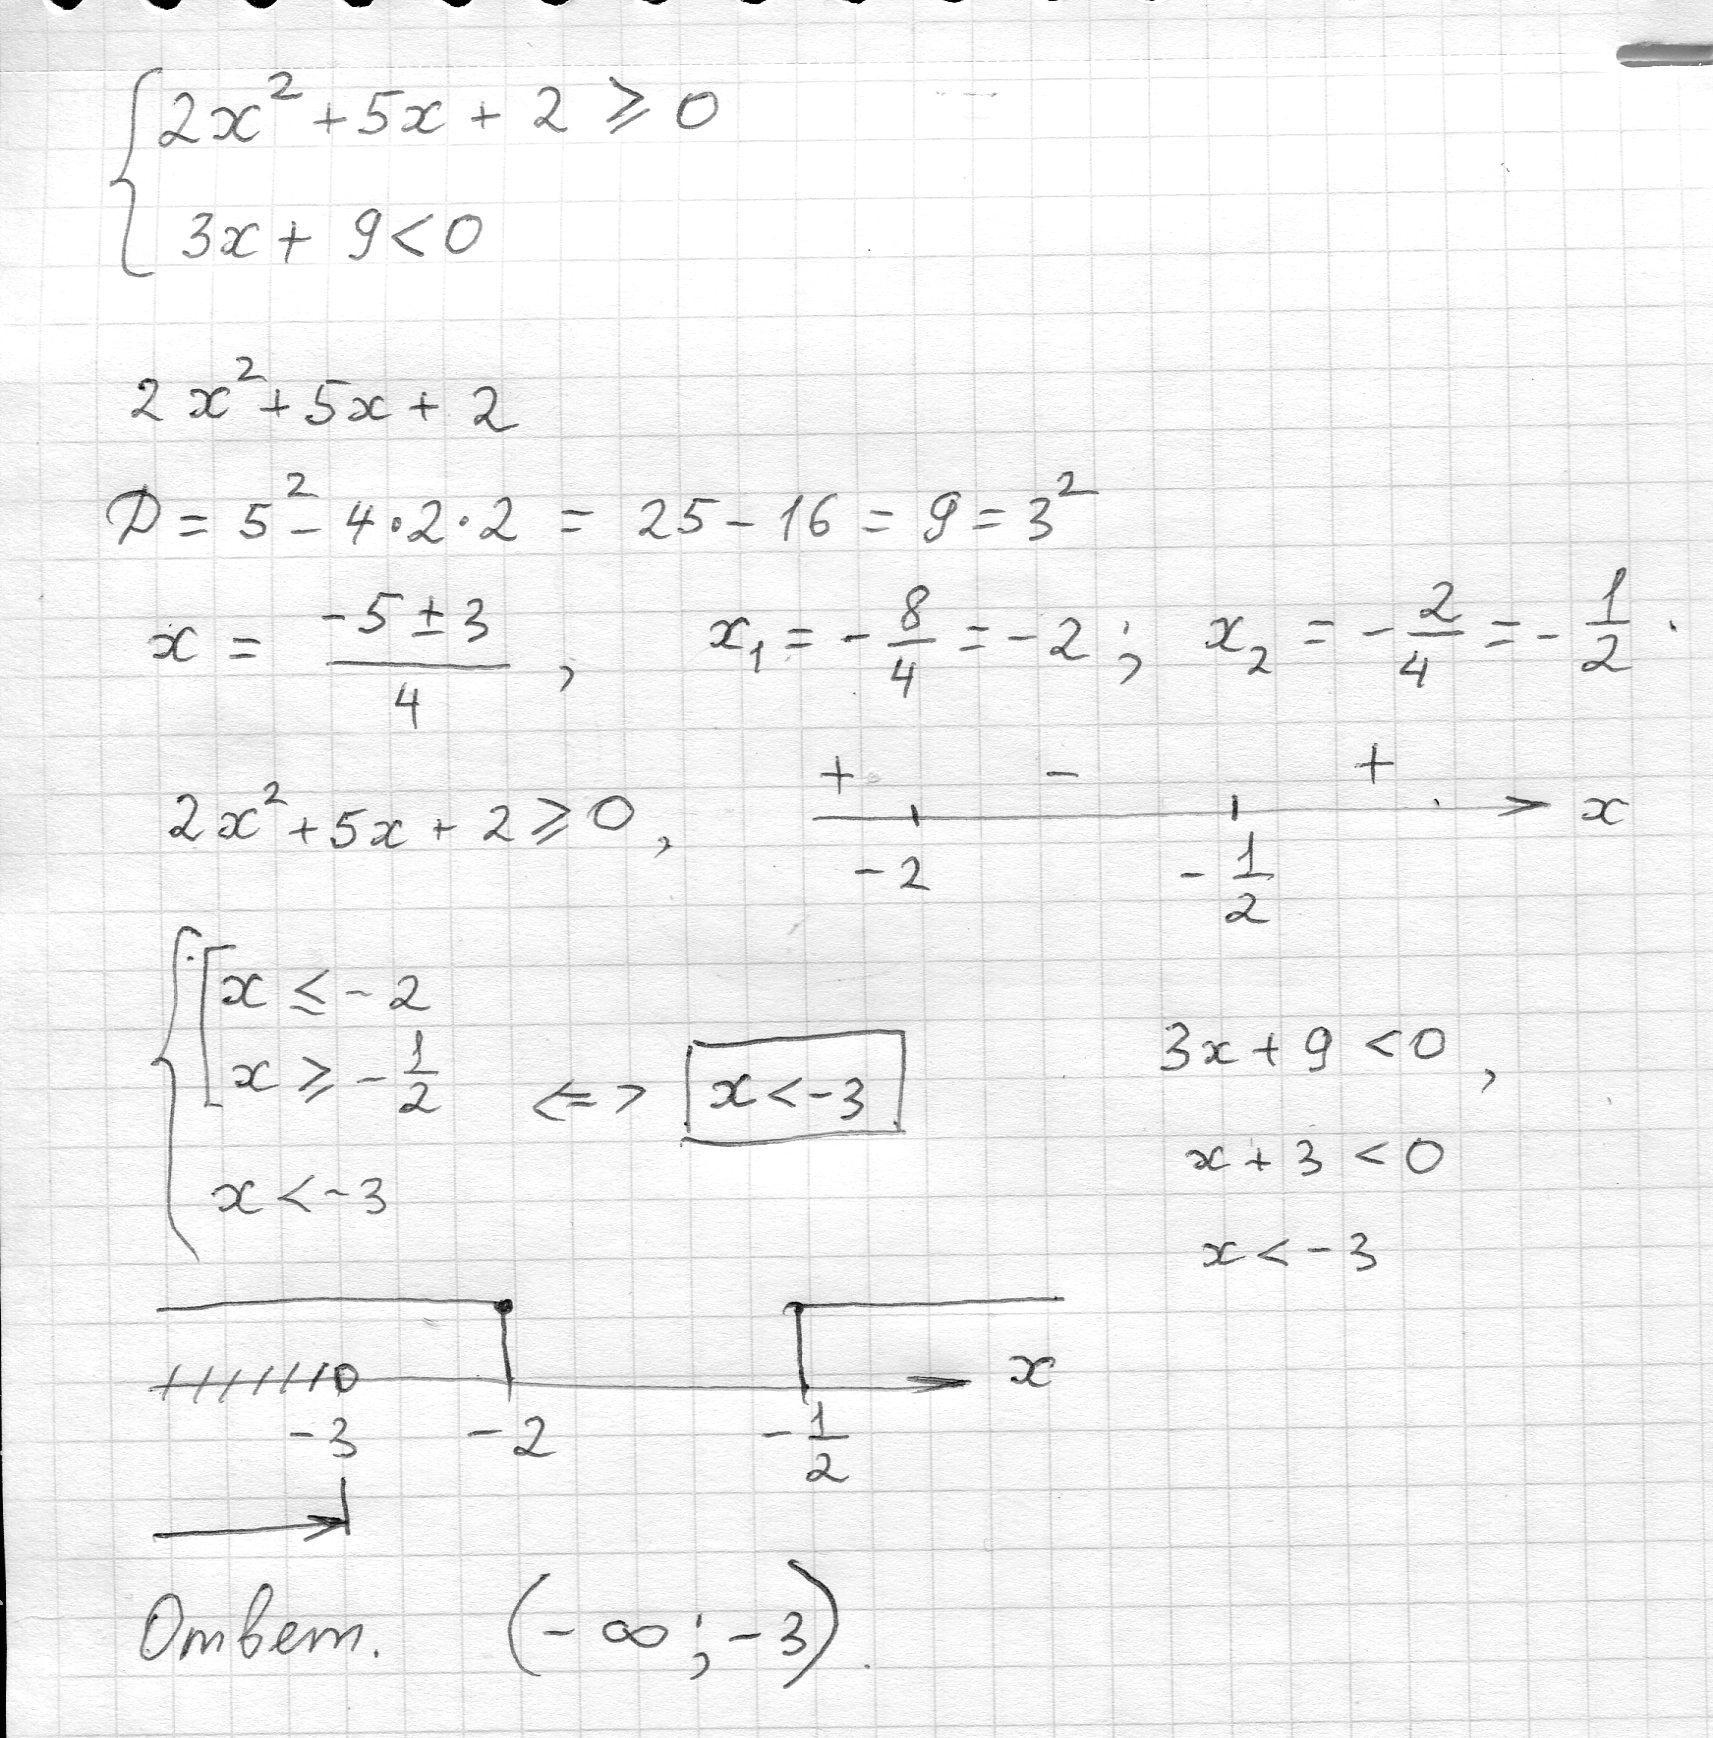 { 2x² + 5x + 2 ⩾ 0
3x + 9 < 0
2x² + 5x + 2
D = 5² - 4·2·2 = 25 - 16 = 9 = 3²
x = (-5 ± 3)/4 , x₁ = -8/4 = -2 ; x₂ = -2/4 = -1/2 .
2x² + 5x + 2 ⩾ 0 , + - + x
-2 -1/2
{ [ x ≤ -2
x ⩾ -1/2 <=> x < -3
x < -3
3x + 9 < 0 ,
x + 3 < 0
x < -3
x
-3 -2 -1/2
Ответ. (-∞ ; -3) .